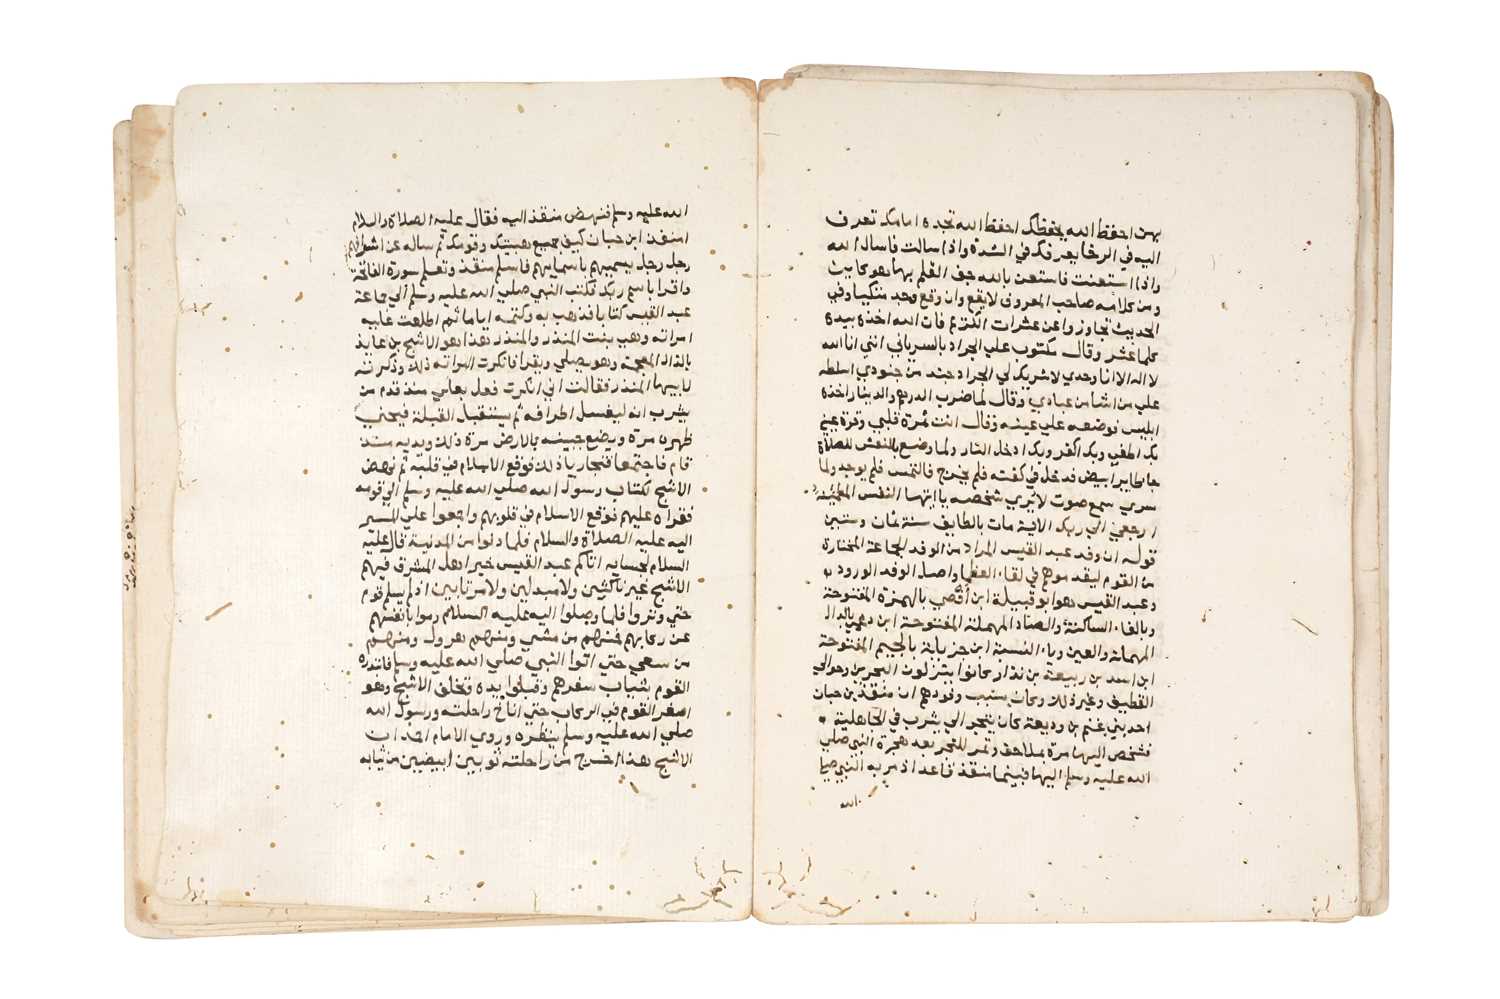 بهن احفظ الله يحفظك احفظ الله تجده امامك تعرف
اليه في الرخا يعرفك في الشدة واذا سالت فاسال الله
واذا استعنت فاستعن بالله جف القلم بما هو كاين
ومن كلامه صاحب المعروف لا يقع وان وقع وجد متكيا وفي
الحديث تجاوزوا عن عثرات الكرم فان الله اخذ بيده
كلما عثر وقال مكتوب علي الجراد بالسرياني انني انا الله
لا اله الا انا وحدي لا شريك لي الجراد جند من جنودي اسلطه
علي من اشا من عبادي وقال لما ضرب الدرهم والدينار اخذه
ابليس فوضعه علي عينيه وقال انت ثمرة قلبي وقرة عيني
بك اطغي وبك اكفر وبك ادخل النار ولما وضع بالنعش للصلاة
جا طاير ابيض فدخل في كفنه فلم يخرج فالتمس فلم يوجد ولما
سوي سمع صوت لا يري شخصه يا ايتها النفس المطمئنة
ارجعي الي ربك الاية مات بالطايف سنة ثمان وستين
قوله ان وفد عبد القيس المراد من الوفد الجماعة المختارة
من القوم ليقدموهم في لقا العظما واصل الوفد الورود
وعبد القيس هو ابو قبيلة ابن أفصي بالهمزة المفتوحة
وبالفا الساكنة والصاد المهملة المفتوحة ابن دعمي بالدال
المهملة والعين ويا النسبة ابن جزيلة بالجيم المفتوحة
ابن اسد بن ربيعة بن نذار كانوا ينزلون البحرين وحوالي
القطيف وغير ذلك وكان سبب وفودهم ان منقذ بن حبان
احد بني غنم بن وديعة كان يتجر الي يثرب في الجاهلية
فشخص اليها مرة بملاحف وتمر للتجر بعد هجرة النبي صلي
الله عليه وسلم اليها فبينما منقذ قاعد اذ مر به النبي صلي
الله
الله عليه وسلم فنهض منقذ اليه فقال عليه الصلاة والسلام
امنقذ ابن حبان كيف جميع هيئتك وقومك ثم ساله عن اشرافهم
رجل رجل يسميهم باسمايهم فاسلم منقذ وتعلم سورة الفاتحة
واقرا باسم ربك فكتب النبي صلي الله عليه وسلم الي جماعة
عبد القيس كتابا فذهب به وكتمه اياما ثم اطلعت عليه
امراته وهي بنت المنذر والمنذر هذا هو الاشج بن عايذ
بالذال المعجمة وهو يصلي ويقرا فانكرت امراته ذلك وذكرته
لابيها المنذر فقالت اني انكرت فعل بعلي منذ قدم من
يثرب انه ليغسل اطرافه ثم يستقبل القبلة فيحني
ظهره مرة ويضع جبينه بالارض مرة ذلك ديدنه منذ
قدم فاجتمعا فتجاريا ذلك فوقع الاسلام في قلبه ثم نهض
الاشج بكتاب رسول الله صلي الله عليه وسلم الي قومه
فقراه عليهم فوقع الاسلام في قلوبهم واجمعوا علي المسير
اليه عليه الصلاة والسلام فلما دنوا من المدينة قال عليه
السلام لجلسايه اتاكم عبد القيس خير اهل المشرق فيهم
الاشج غير ناكثين ولا مبدلين ولا مرتابين اذ لم يسلم قوم
حتي وتروا فلما وصلوا اليه عليه السلام رموا بانفسهم
عن ركابهم فمنهم من مشي ومنهم من هرول ومنهم
من سعي حتي اتوا النبي صلي الله عليه وسلم فابتدره
القوم بثياب سفرهم وقبلوا يده وتخلف الاشج وهو
اصغر القوم في الركاب حتي اناخ راحلته ورسول الله
صلي الله عليه وسلم ينظره وروي الامام احمد ان
الاشج هذا اخرج من راحلته ثوبين ابيضين من ثيابه